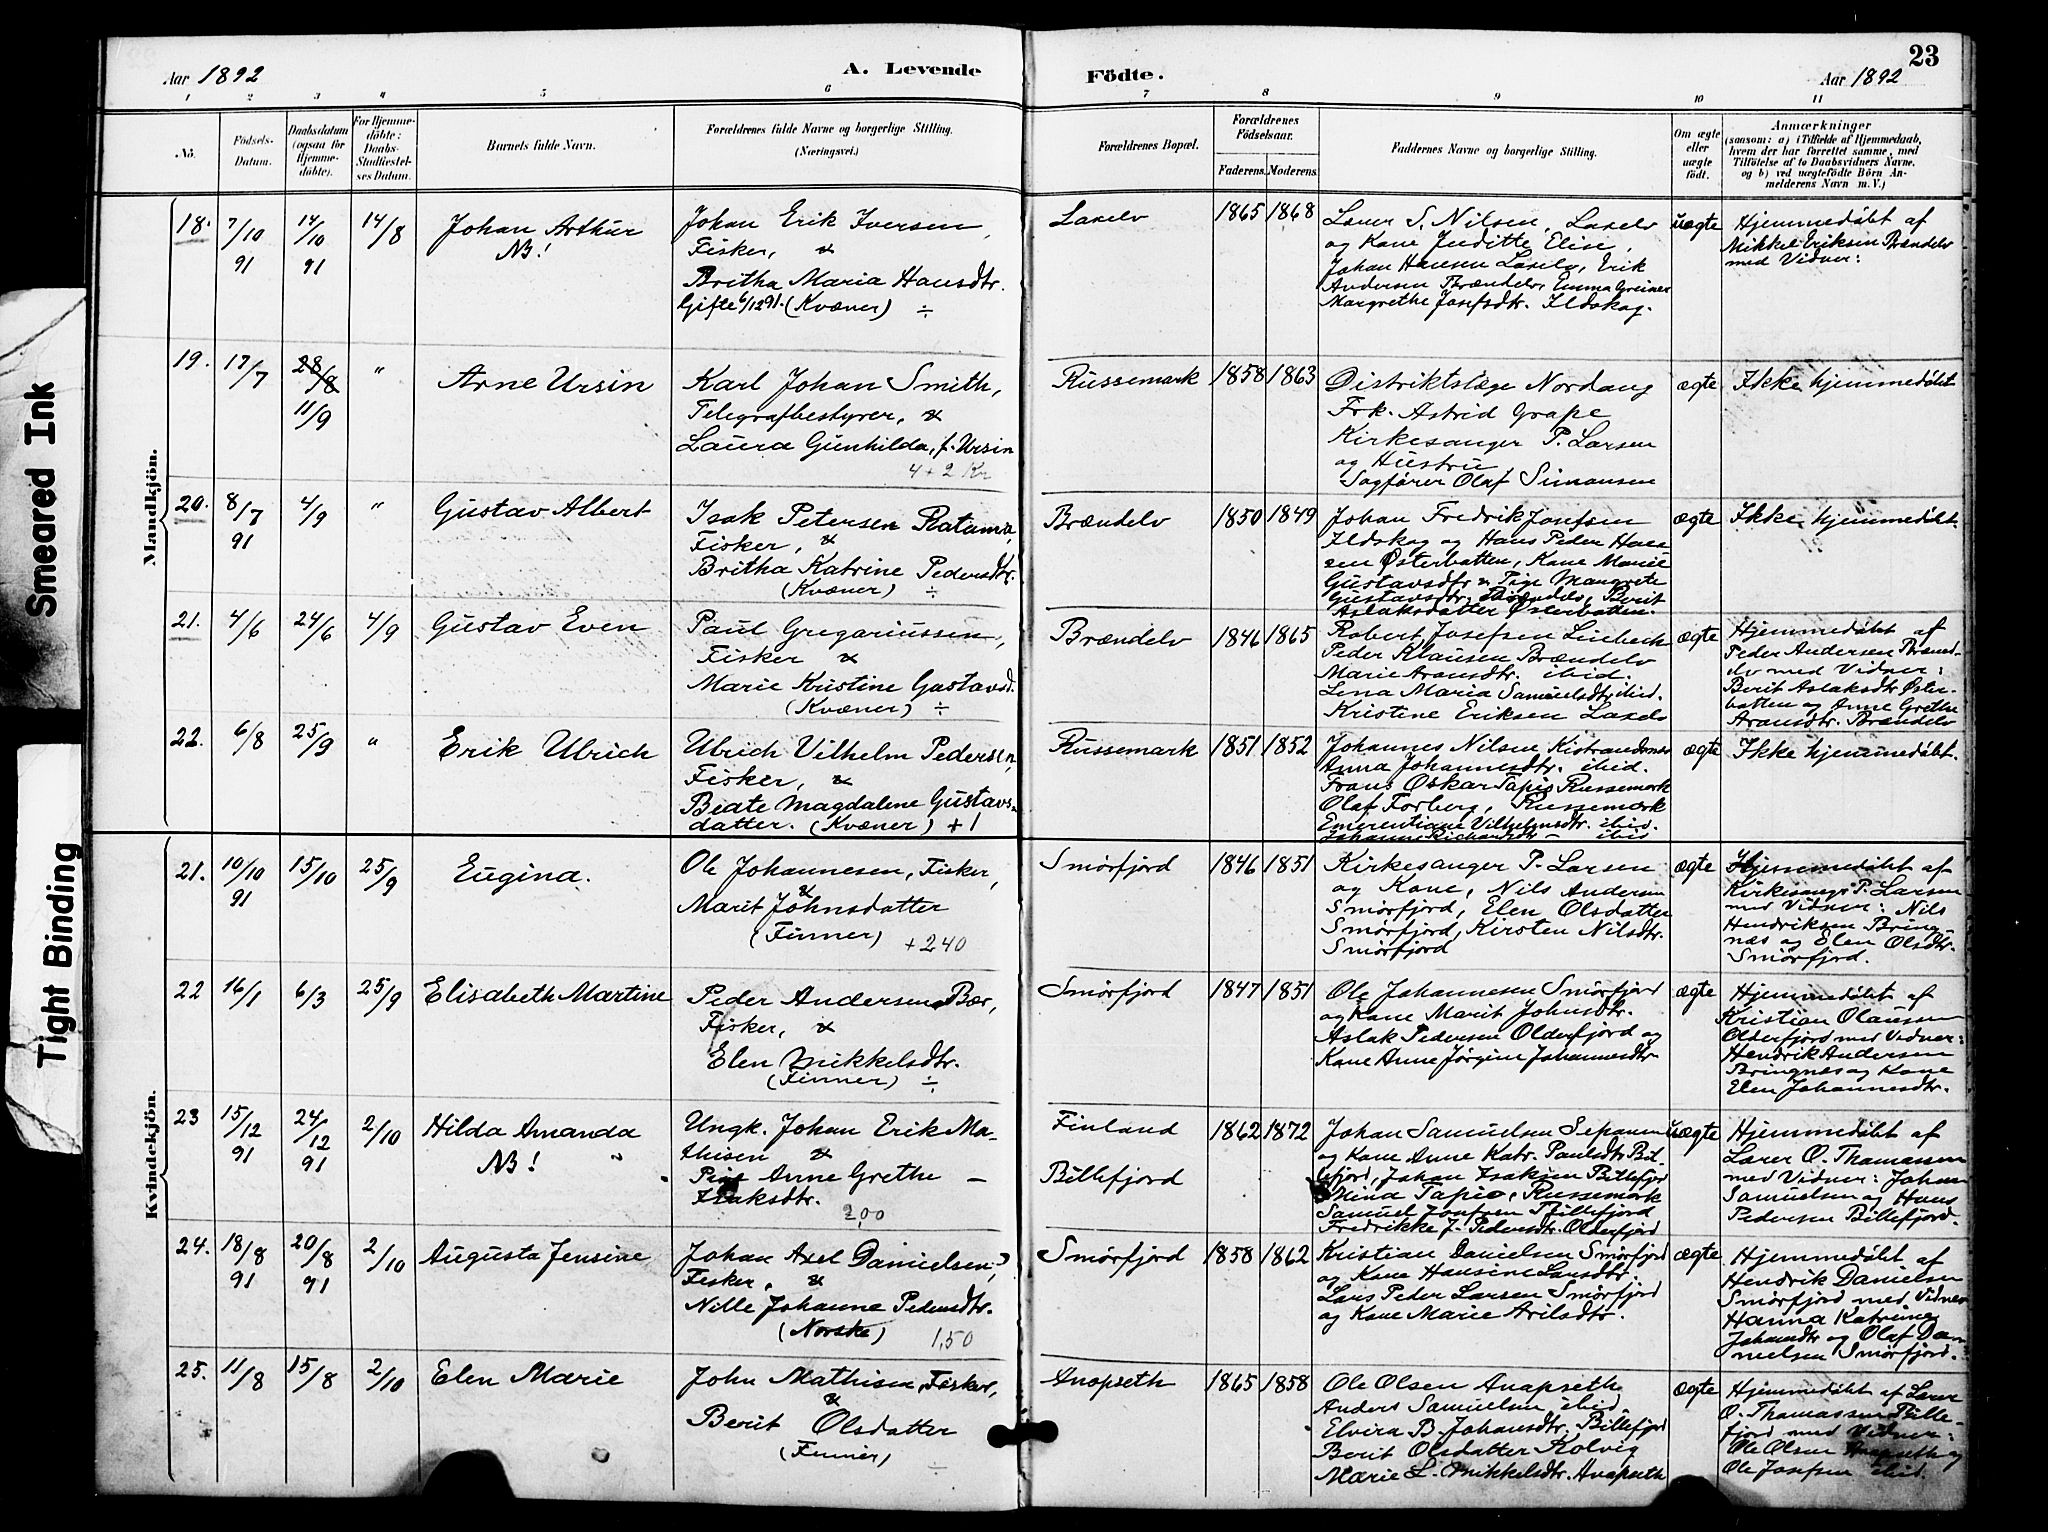 Aar 1892
A. Levende
Födte.
23
Aar 1892
1 2 3 4 5 6 7 8 9 10 11
No.
Födsels-
Datum.
Daabsdatum
(ogsaa for
Hjemme-
döbte).
For Hjemme-
döbte:
Daabs-
Stadfæstel-
ses Datum.
Barnets fulde Navn.
Forældrenes fulde Navne og borgerlige Stilling.
(Næringsvei.)
Forældrenes Bopæl.
Forældrenes
Födselsaar.
Faderens. Moderens.
Faddernes Navne og borgerlige Stilling.
Om ægte
eller
uægte
födt.
Anmærkninger
(saasom: a) i Tilfælde af Hjemmedaab,
hvem der har forrettet samme, med
Tilföielse af to Daabsvidners Navne,
og b) ved uægtefödte Börn An-
melderens Navn m. V.)
Smeared Ink
Tight Binding
Mandkjön.
18. 7/10 91
14/10 91
14/8
Johan Arthur
NB!
Johan Erik Iversen,
Fisker, &
Britha Maria Hansdtr.
Gifte 6/12 91. (Kvæner) ÷
Laxelv
1865 1868
Larer S. Nilsen, Laxelv
og Kone Juditte Elise,
Johan Hansen Laxelv, Erik
Andersen Brændelv, Emma Greiner
Margrethe Josefsdtr. Ildskog.
uægte
Hjemmedøbt af
Mikkel Eriksen Brændelv
med Vidner:
19. 17/7
28/8
11/9
"
Arne Ursin
Karl Johan Smith,
Telegrafbestyrer, &
Laura Gunhilda, f. Ursin
4 + 2 Kr
Russemark
1858 1863
Distriktslæge Nordang
Frk. Astrid Grape
Kirkesanger P. Larsen
og Hustru
Sagfører Olaf Simonsen
ægte
Ikke hjemmedøbt
20. 8/7 91
4/9
"
Gustav Albert
Isak Petersen Ratama,
Fisker, &
Britha Katrine Pedersdtr.
(Kvæner) ÷
Brændelv
1850 1849
Johan Fredrik Josefsen
Ildskog og Hans Peder Han-
sen Østerbotten, Kone Marie
Gustavsdtr & Pige Margrete
Gustavsdtr. Brændelv, Berit
Aslaksdatter Østerbotten.
ægte
Ikke hjemmedøbt.
21. 4/6
24/6
4/9
Gustav Even
Paul Gregariussen,
Fisker &
Marie Kristine Gustavsd.
(Kvæner) ÷
Brændelv
1846 1865
Robert Josefsen
Peder Klausen Brændelv
Marie Aronsdtr. ibid.
Lina Maria Samuelsdtr. ibid.
Kristine Eriksen Laxelv
ægte
Hjemmedøbt af
Peder Andersen Brænd-
elv med Vidner:
Berit Aslaksdtr Øster-
botten og Anne Grethe
Aronsdtr. Brændelv
22. 6/8
25/9
"
Erik Ulrich
Ulrich Vilhelm Pedersen,
Fisker, &
Beate Magdalene Gustavs-
datter. (Kvæner) +1
Russemark
1851 1852
Johannes Nilsen Kistrandsnes
Anna Johannesdtr. ibid.
Frans Oskar Tapio Russemark
Olaf Forberg, Russemark
Emerentiane Vilhelmsdtr. ibid.
ibid
ægte
Ikke hjemmedøbt.
Kvindekjön.
21. 10/10 91
15/10
25/9
Eugina.
Ole Johannesen, Fisker,
&
Marit Johnsdatter
(Finner) + 240
Smørfjord
1846 1851
Kirkesanger P. Larsen
og Kone, Nils Andersen
Smørfjord, Elen Olsdatter
Smørfjord, Kirsten Nilsdtr.
Smørfjord
ægte
Hjemmedøbt af
Kirkesanger P. Larsen
med Vidner: Nils
Hendriksen Bring-
næs og Elen Olsdtr.
Smørfjord.
22 16/1
6/3
25/9
Elisabeth Martine
Peder Andersen Bær,
Fisker, &
Elen Mikkelsdtr.
(Finner) ÷
Smørfjord
1847 1851
Ole Johannesen Smørfjord
og Kone Marit Johnsdtr.
Aslak Pedersen Olderfjord og
Kone Anne Jørgine Johannesdtr
ægte
Hjemmedøbt af
Kristian Olaussen
Olderfjord med Vidner:
Hendrik Andersen
Bringnæs og Kone
Elen Johannesdtr.
23 15/12 91
24/12 91
2/10
Hilda Amanda
NB! "
Ungk. Johan Erik Ma-
thisen &
Pige Anne Grethe —
Isaksdtr.
2,00
Finland
Billefjord
1862 1872
Johan Samuelsen
og Kone Anne Katr. Paulsdtr Bil-
lefjord, Johan Isaksen Billefjord
Mina Tapio, Russemark
Samuel Josefsen Billefjord
Fredrikke J. Pedersdtr. Olderfjord
uægte
Hjemmedøbt af
Lærer O. Thomassen
med Vidner: Johan
Samuelsen og Hans
Pedersen Billefjord.
24. 18/8 91
20/8 91
2/10
Augusta Jensine
Johan Axel Danielsen,
Fisker, &
Nille Johanne Pedersdtr.
(Norske) 1,50
Smørfjord
1858 1862
Kristian Danielsen Smørfjord
og Kone Hansine Larsdtr.
Lars Peder Larsen Smørfjord
og Kone Marie Arilsdtr.
ægte
Hjemmedøbt af
Hendrik Danielsen
Smørfjord med Vidner
Hanna Katrine
Johansdtr og Olaf Da-
nielsen Smørfjord.
25. 11/8
15/8
2/10
Elen Marie
John Mathisen, Fisker,
&
Berit Olsdatter
(Finner) ÷
Anopseth
1865 1858
Ole Olsen Anopseth
Anders Samuelsen ibid.
Elvira B. Johansdtr. Billefjord
Berit Olsdatter Kolvig
Marie L. Mikkelsdtr. Anopseth
ægte
Hjemmedøbt af Lærer
O. Thomassen Bille-
fjord med Vidner:
Ole Olsen Anopseth og
Ole Josefsen ibid.